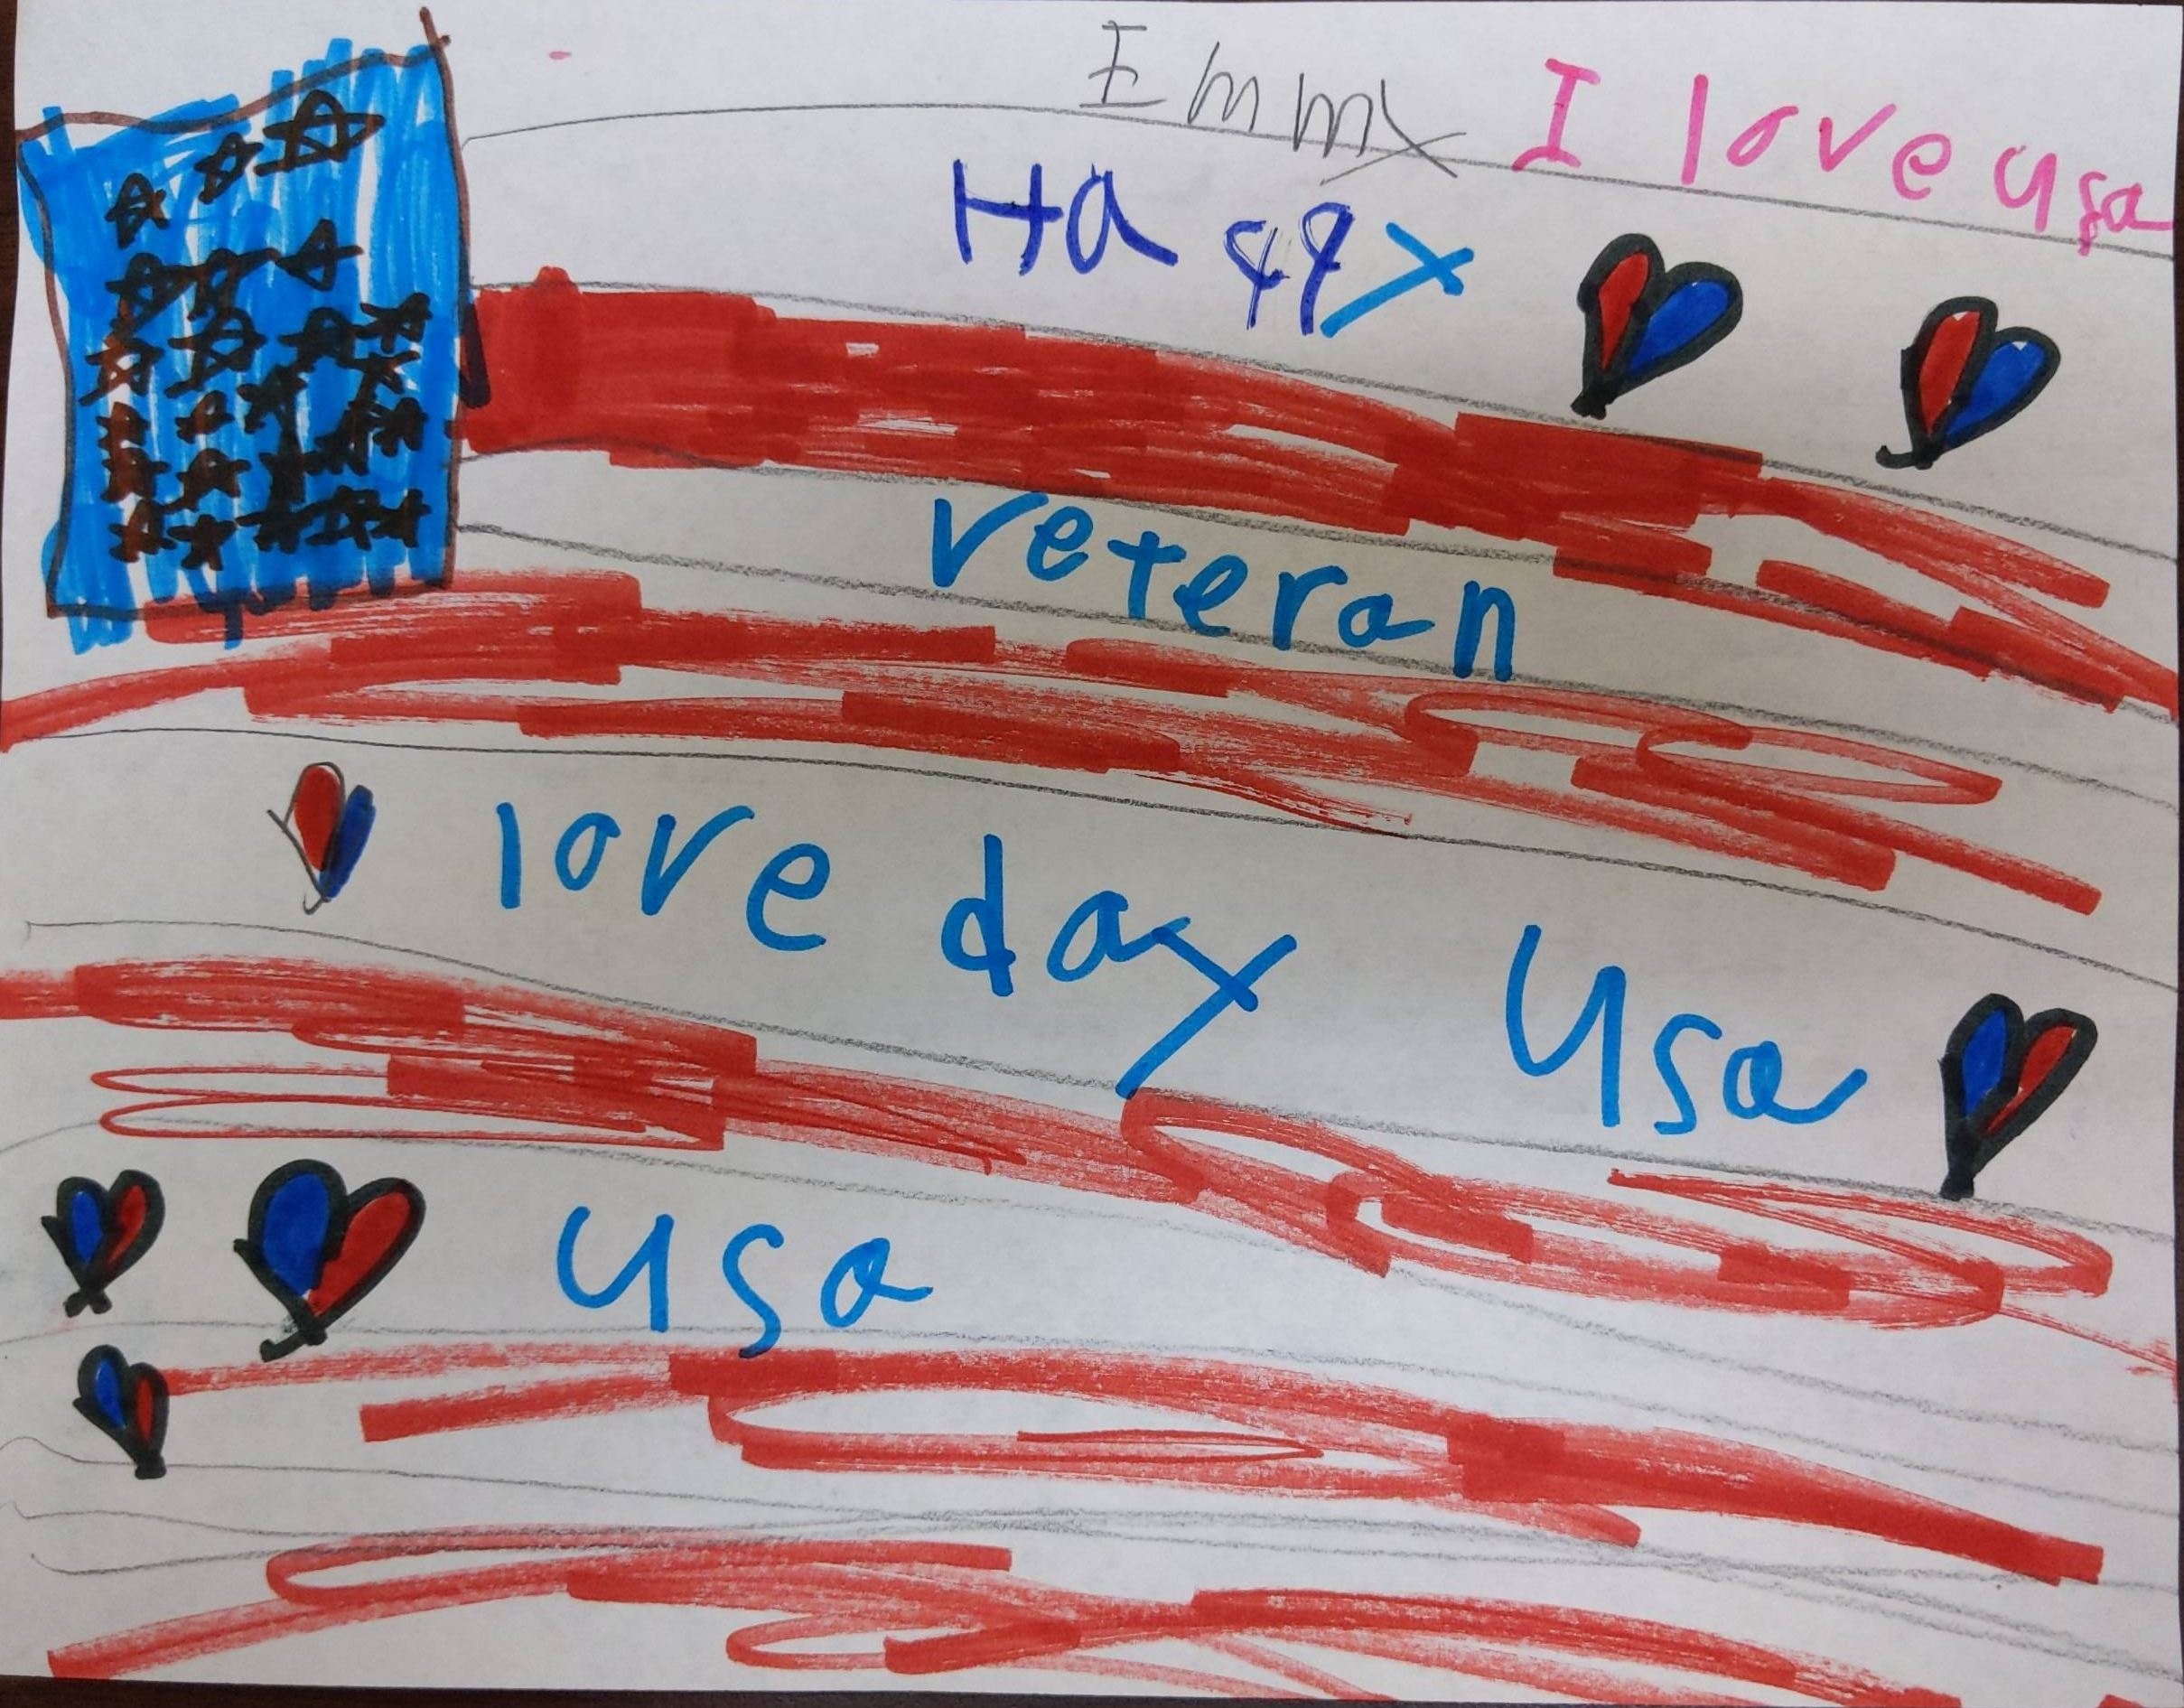 Emmy
I love usa
Happy
veteran
love day usa
usa